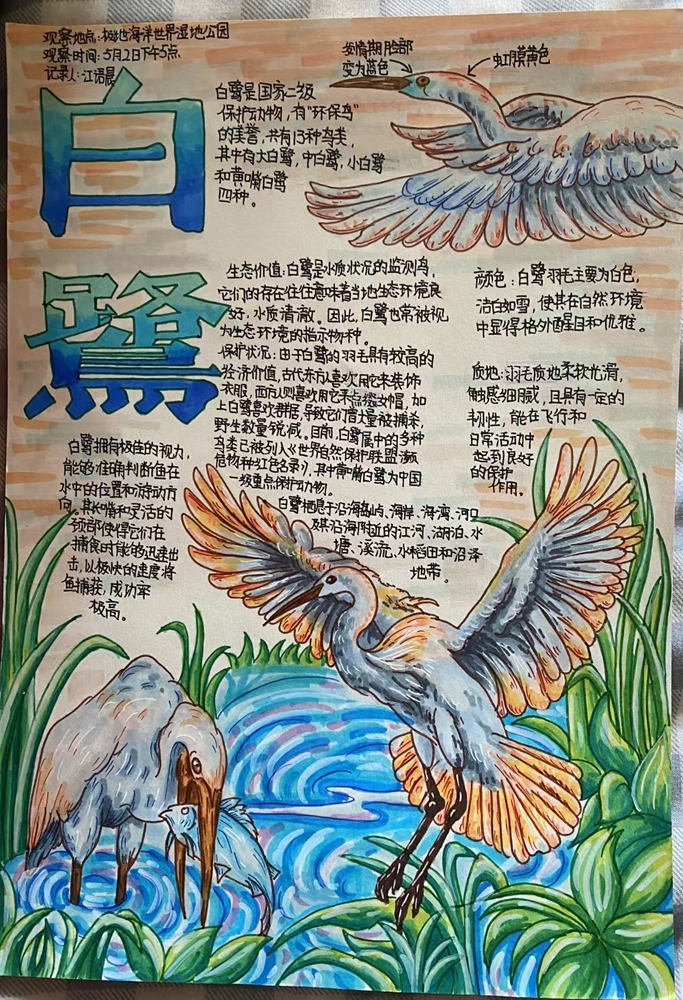 观察地点:极地海洋世界湿地公园
观察时间:5月2日下午5点
记录人:江语晨
白鹭
发情期脸部
变为蓝色
虹膜黄色
白鹭是国家二级
保护动物,有“环保鸟”
的美誉,共有13种鸟类,
其中有大白鹭,中白鹭,小白鹭
和黄嘴白鹭
四种。
生态价值:白鹭是水质状况的监测鸟,
它们的存在往往意味着当地生态环境良
好,水质清澈。因此,白鹭也常被视
为生态环境的指示物种。
保护状况:由于白鹭的羽毛具有较高的
经济价值,古代东方人喜欢用它来装饰
衣服,西方人则喜欢用它来点缀女帽,加
上白鹭喜欢群居,导致它们曾大量被捕杀,
野生数量锐减。目前,白鹭属中的多种
鸟类已被列入《世界自然保护联盟濒
危物种红色名录》,其中黄嘴白鹭为中国
一级重点保护动物。
颜色:白鹭羽毛主要为白色,
洁白如雪,使其在自然环境
中显得格外醒目和优雅。
质地:羽毛质地柔软光滑,
触感细腻,且具有一定的
韧性,能在飞行和
日常活动中
起到良好
的保护
作用。
白鹭拥有极佳的视力,
能够准确判断鱼在
水中的位置和游动方
向。其长嘴和灵活的
颈部使得它们在
捕食时能够迅速出
击,以极快的速度将
鱼捕获,成功率
极高。
白鹭栖息于沿海岛屿、海岸、海湾、河口
及其沿海附近的江河、湖泊、水
塘、溪流、水稻田和沼泽
地带。